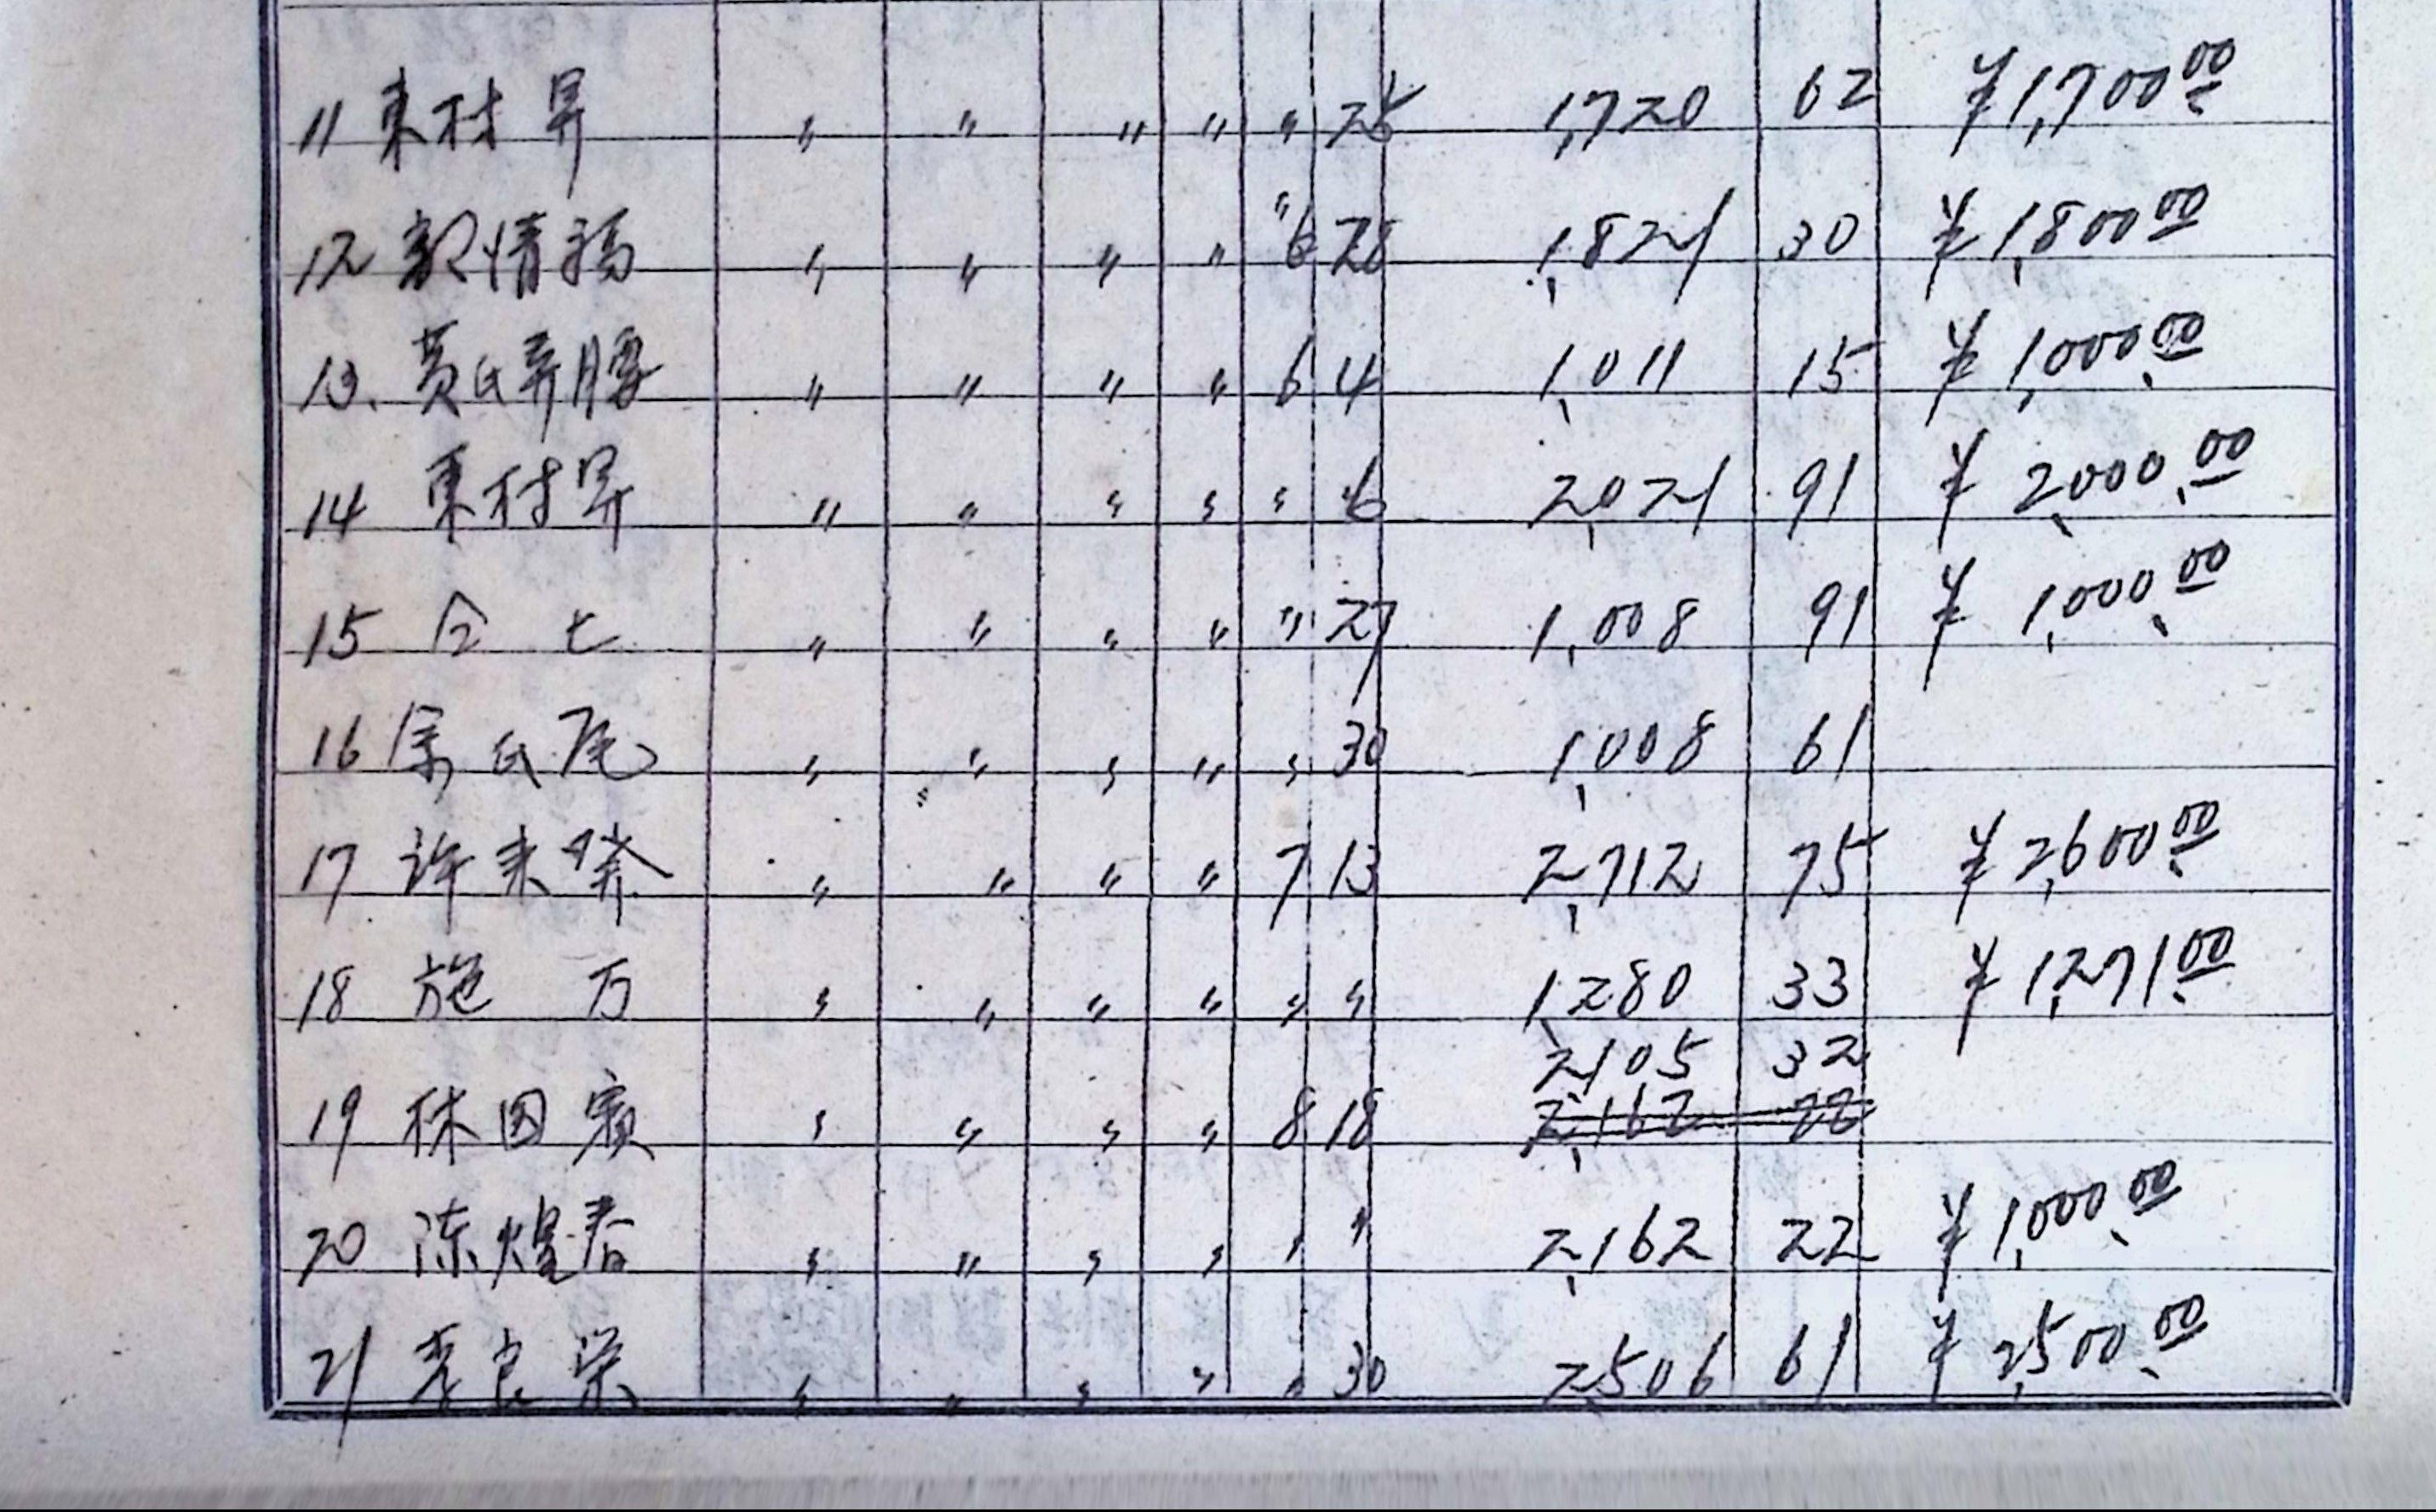 11 東村昇 〃 〃 〃 〃 〃 25 1,720 62 ¥1,700.00
12 情福 〃 〃 〃 〃 〃6 28 1,821 30 ¥1,800.00
13. 黄氏弄 〃 〃 〃 〃 6 4 1,011 15 ¥1,000.00
14 東村昇 〃 〃 〃 〃 〃 6 2,021 91 ¥2,000.00
15 仝 七 〃 〃 〃 〃 〃 27 1,008 91 ¥1,000.00
16 氏尾 〃 〃 〃 〃 〃 30 1,008 61
17 许来 〃 〃 〃 〃 7 13 2,712 75 ¥2,600.00
18 施 万 〃 〃 〃 〃 〃 〃 1,280 33 ¥1,271.00
2,105 32
19 林因 〃 〃 〃 〃 8 18 2,162 22
20 陈煌春 〃 〃 〃 〃 〃 〃 2,162 22 ¥1,000.00
21 李良栄 〃 〃 〃 〃 〃 30 2,506 61 ¥2,500.00